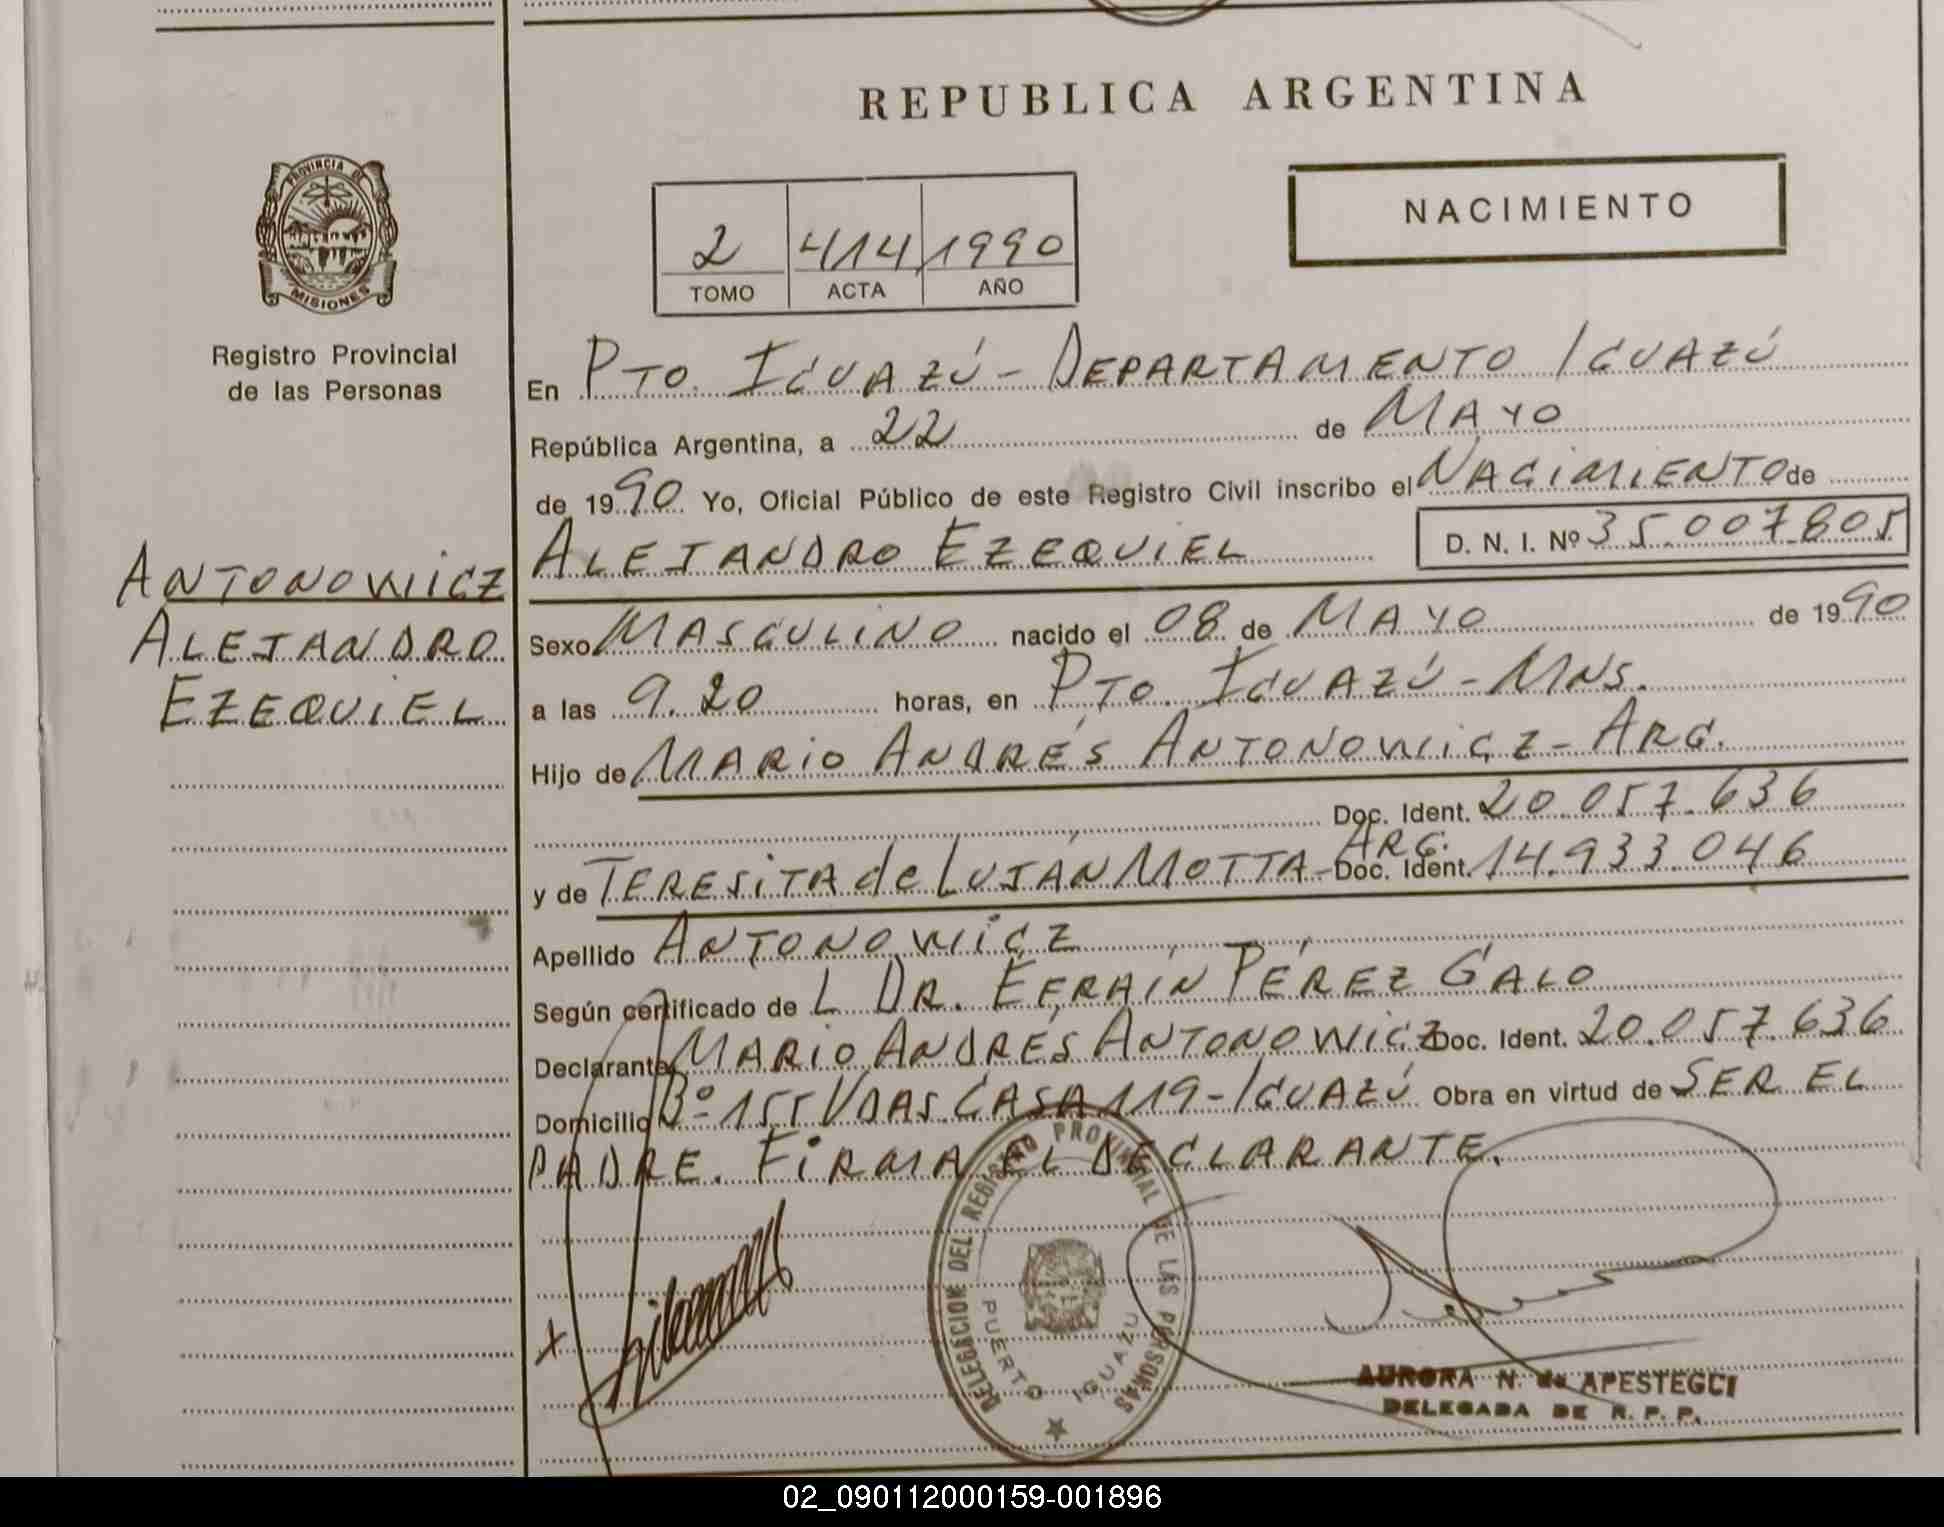 REPUBLICA ARGENTINA
NACIMIENTO
2 414 1990
TOMO ACTA AÑO
PROVINCIA DE
MISIONES
Registro Provincial
de las Personas
En PTO. IGUAZÚ - DEPARTAMENTO IGUAZÚ
República Argentina, a 22 de MAYO
de 1990 Yo, Oficial Público de este Registro Civil inscribo el NACIMIENTO de
ALEJANDRO EZEQUIEL D. N. I. Nº 35.007.805
ANTONOWICZ
ALEJANDRO
EZEQUIEL
Sexo MASCULINO nacido el 08 de MAYO de 1990
a las 9.20 horas, en PTO. IGUAZÚ - MNS.
Hijo de MARIO ANDRÉS ANTONOWICZ - ARG.
Doc. Ident. 20.057.636
ARG.
y de TERESITA de LUJÁN MOTTA - Doc. Ident. 14.933.046
Apellido ANTONOWICZ
Según certificado de L DR. EFRAÍN PÉREZ GALO
Declarante MARIO ANDRÉS ANTONOWICZ Doc. Ident. 20.057.636
Domicilio Bº 155 VDAS. CASA 119 - IGUAZÚ Obra en virtud de SER EL
PADRE. FIRMA EL DECLARANTE.
DELEGACION DEL REGISTRO PROVINCIAL DE LAS PERSONAS
PUERTO IGUAZU
AURORA N. de APESTEGUI
DELEGADA DE R. P. P.
02_090112000159-001896